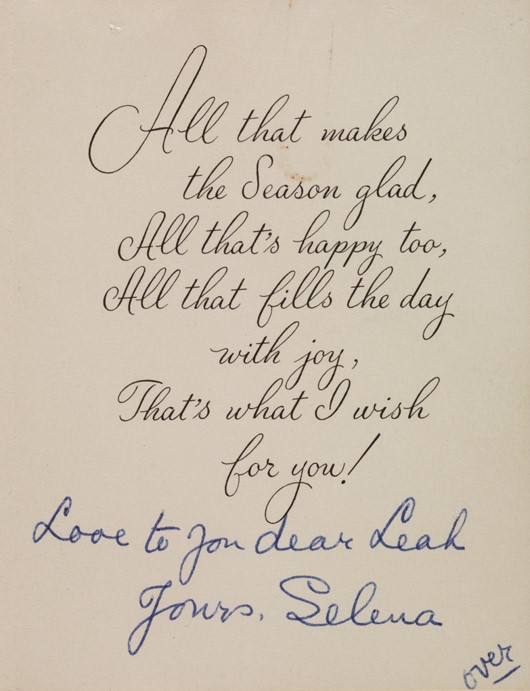 All that makes
the Season glad,
All that's happy too,
All that fills the day
with joy,
That's what I wish
for you!
Love to you dear Leah
Yours. Selena
over